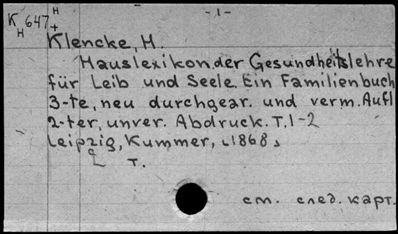 - 1 -
К 647 н
н +
Klencke, H.
Hauslexikon der Gesundheitslehre
für Leib und Seele. Ein Familienbuch
3-te, neu durchgear. und verm. Aufl
2-ter, unver. Abdruck. T. 1-2
Leipzig, Kummer, [1868]
T.
см. след. карт.